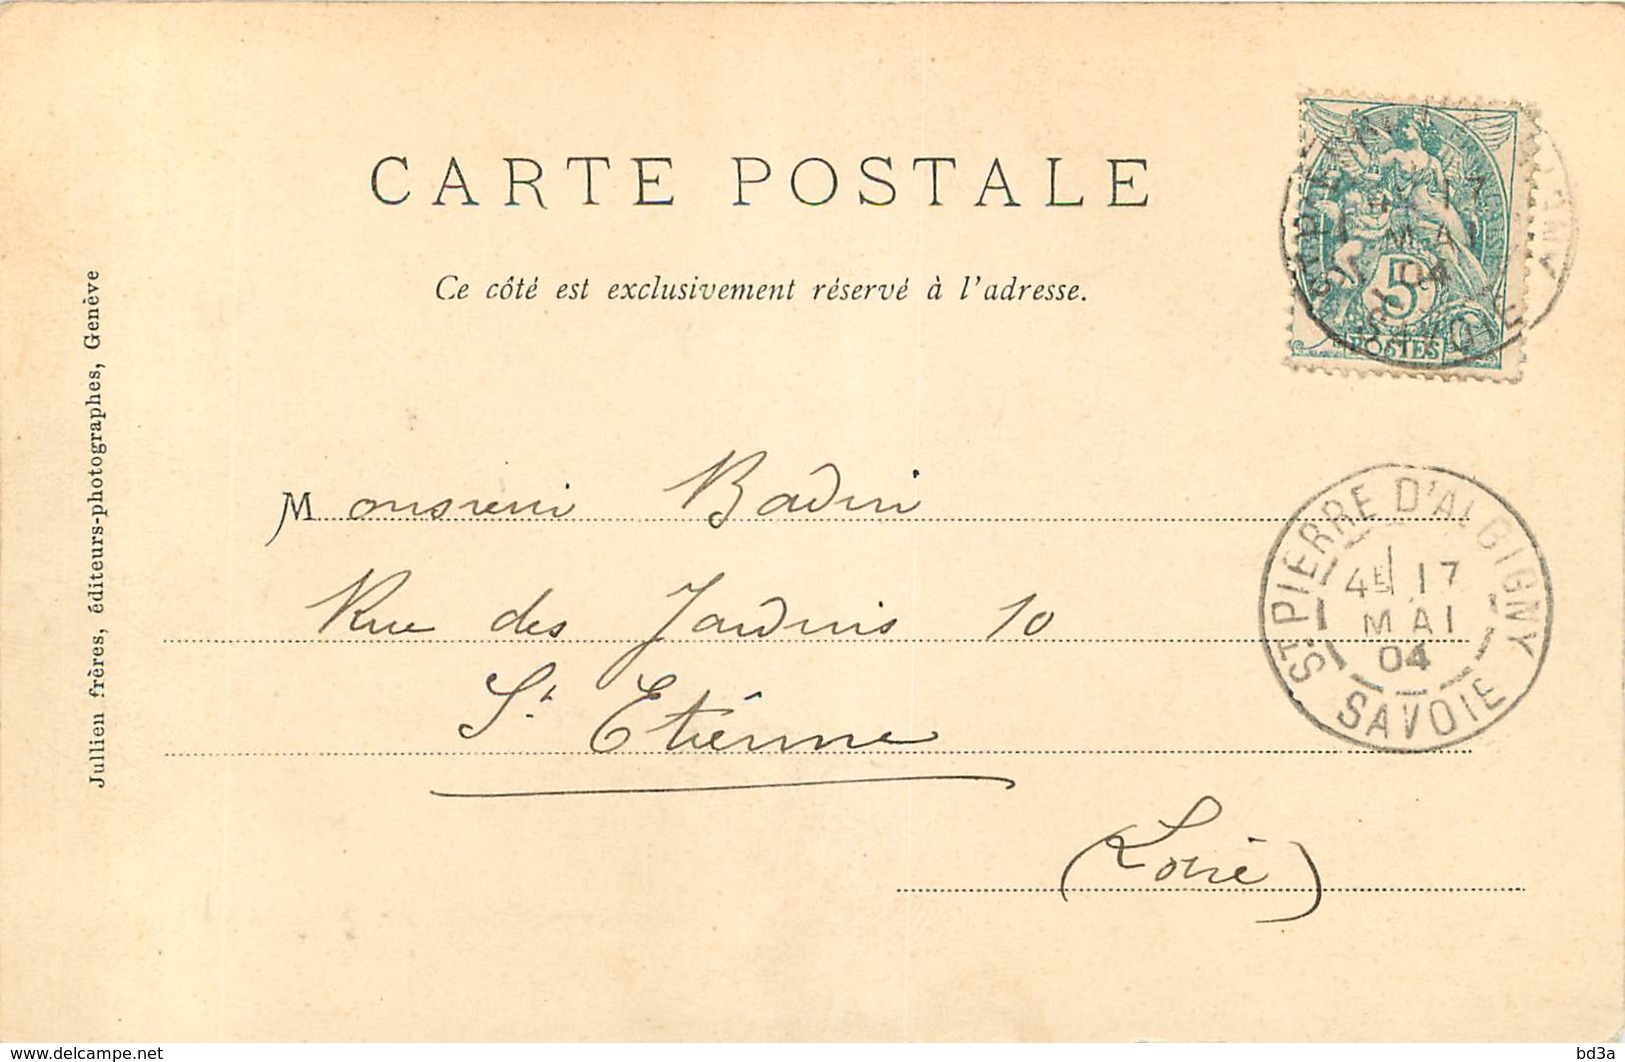 CARTE POSTALE
Ce côté est exclusivement réservé à l'adresse.
Jullien frères, éditeurs-photographes, Genève
5
POSTES
17
MAI
04
SAVOIE
Monsieur Badin
Rue des Jardins 10
St Etienne
(Loire)
ST PIERRE D'ALBIGNY
4E 17
MAI
04
SAVOIE
www.delcampe.net
bd3a